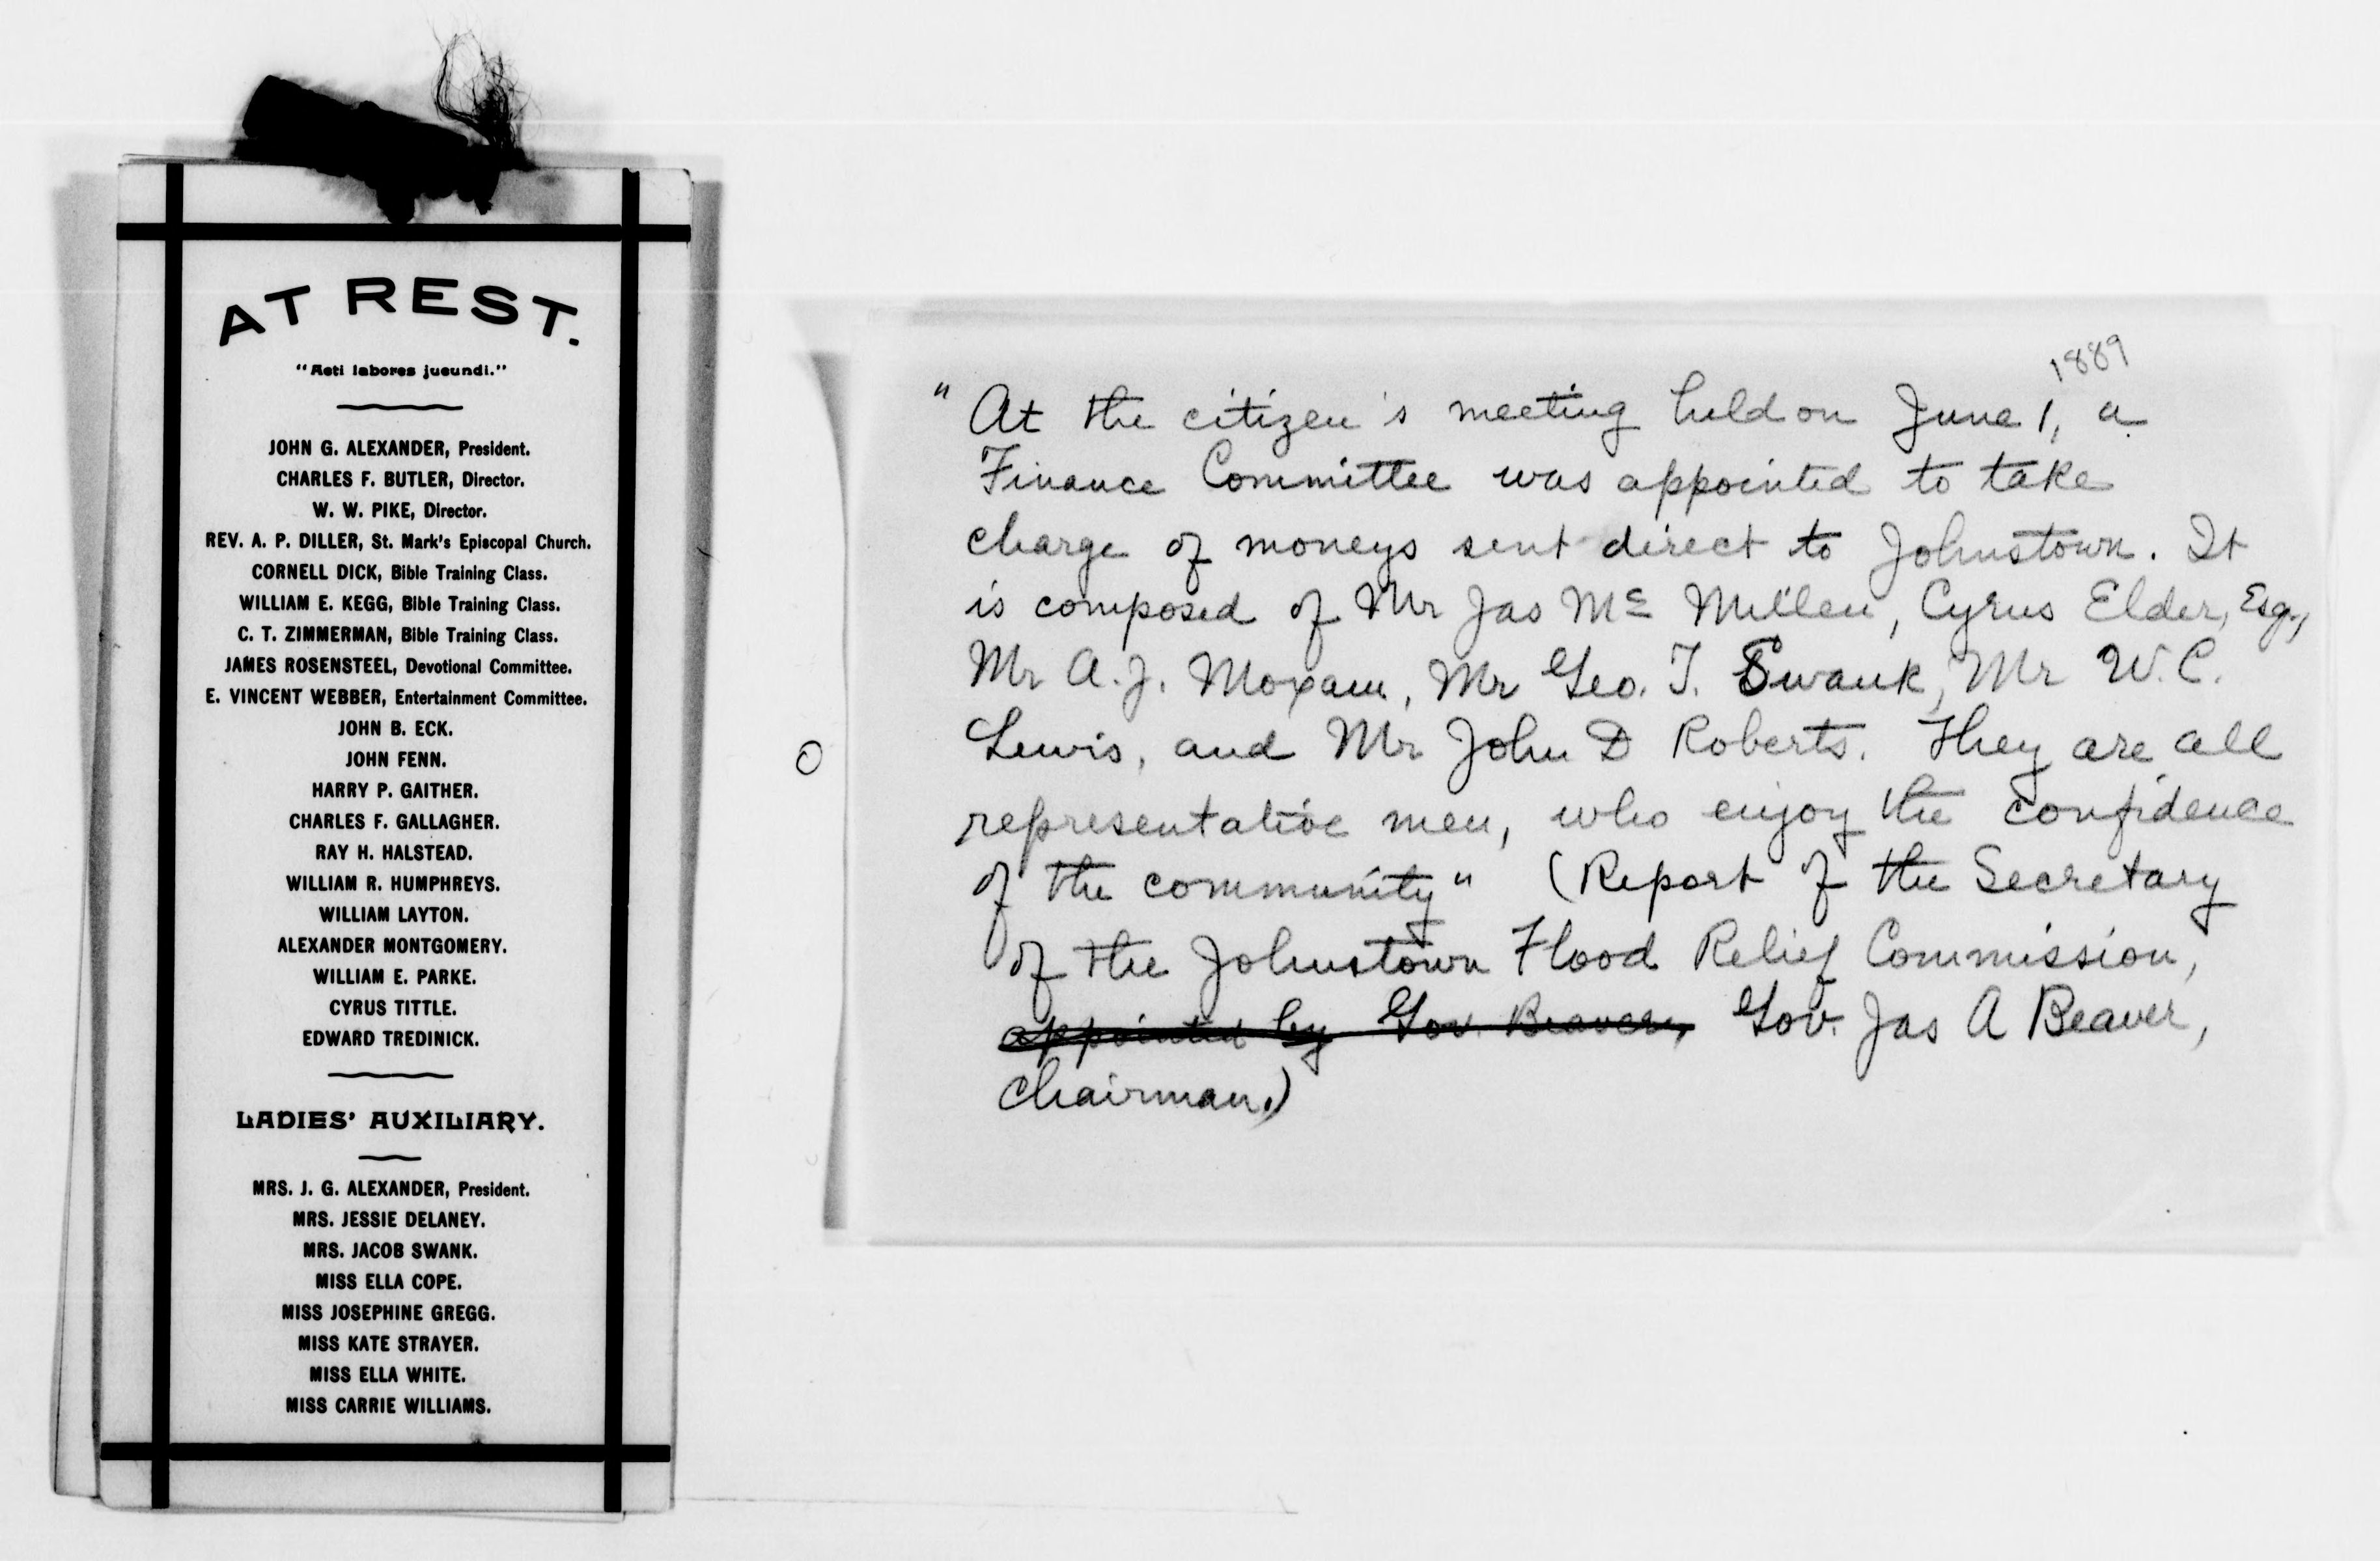 AT REST.
"Acti labores jucundi."
JOHN G. ALEXANDER, President.
CHARLES F. BUTLER, Director.
W. W. PIKE, Director.
REV. A. P. DILLER, St. Mark's Episcopal Church.
CORNELL DICK, Bible Training Class.
WILLIAM E. KEGG, Bible Training Class.
C. T. ZIMMERMAN, Bible Training Class.
JAMES ROSENSTEEL, Devotional Committee.
E. VINCENT WEBBER, Entertainment Committee.
JOHN B. ECK.
JOHN FENN.
HARRY P. GAITHER.
CHARLES F. GALLAGHER.
RAY H. HALSTEAD.
WILLIAM R. HUMPHREYS.
WILLIAM LAYTON.
ALEXANDER MONTGOMERY.
WILLIAM E. PARKE.
CYRUS TITTLE.
EDWARD TREDINICK.
LADIES' AUXILIARY.
MRS. J. G. ALEXANDER, President.
MRS. JESSIE DELANEY.
MRS. JACOB SWANK.
MISS ELLA COPE.
MISS JOSEPHINE GREGG.
MISS KATE STRAYER.
MISS ELLA WHITE.
MISS CARRIE WILLIAMS.
1889
"At the citizen's meeting held on June 1, a
Finance Committee was appointed to take
charge of moneys sent direct to Johnstown. It
is composed of Mr Jas Mc Millen, Cyrus Elder, Esq.,
Mr A. J. Moxam, Mr Geo. T. Swank, Mr W. C.
Lewis, and Mr John D Roberts. They are all
representative men, who enjoy the confidence
of the community" (Report of the Secretary
of the Johnstown Flood Relief Commission,
appointed by Gov. Beaver, Gov. Jas A Beaver,
Chairman.)